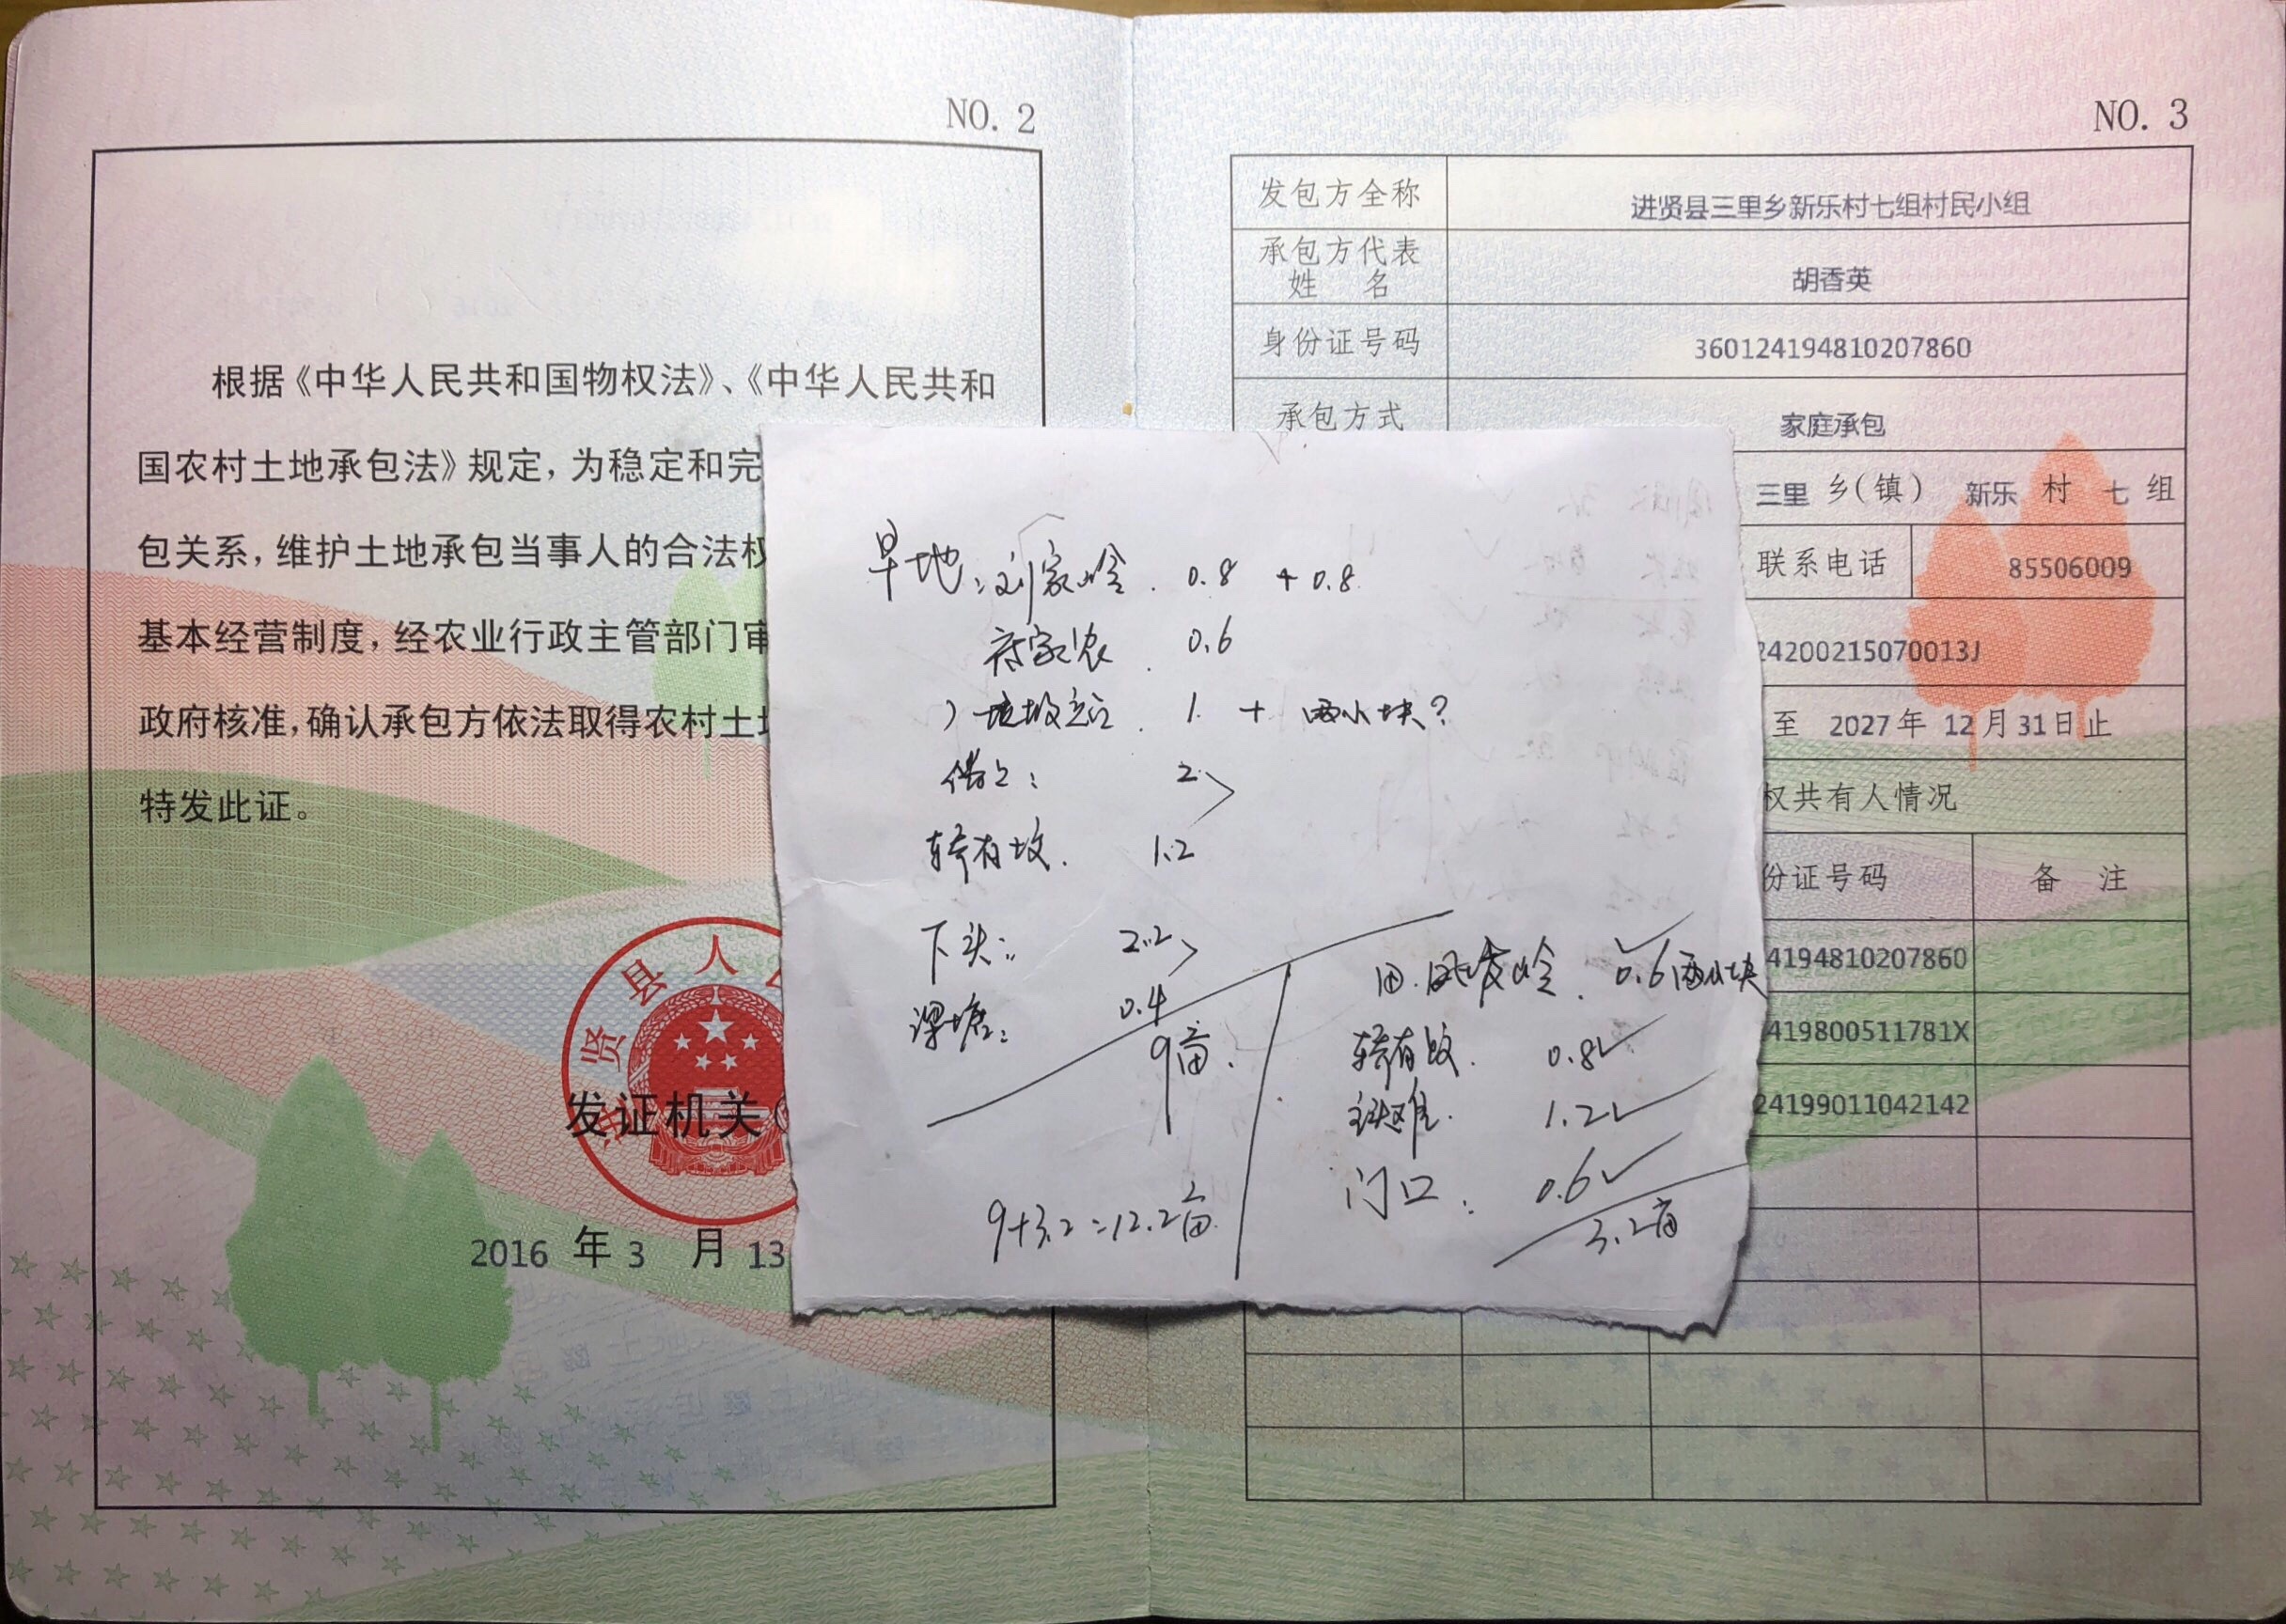 NO. 2
根据《中华人民共和国物权法》、《中华人民共和
国农村土地承包法》规定，为稳定和完
包关系，维护土地承包当事人的合法权
基本经营制度，经农业行政主管部门审
政府核准，确认承包方依法取得农村土
特发此证。
贤县人
发证机关
2016 年 3 月 13
NO. 3
发包方全称 进贤县三里乡新乐村七组村民小组
承包方代表
姓 名 胡香英
身份证号码 360124194810207860
承包方式 家庭承包
三里 乡(镇) 新乐 村 七 组
联系电话 85506009
24200215070013J
至 2027年 12月31日止
权共有人情况
份证号码 备 注
4194810207860
419800511781X
24199011042142
旱地: 刘家岭. 0.8 + 0.8
0.6
1. + 两小块?
2
1.2
下头: 2.2
深塘: 0.4
9亩.
9+3.2=12.2亩.
田. 岭. 0.6两小块
0.8
1.2
门口: 0.6
3.2亩